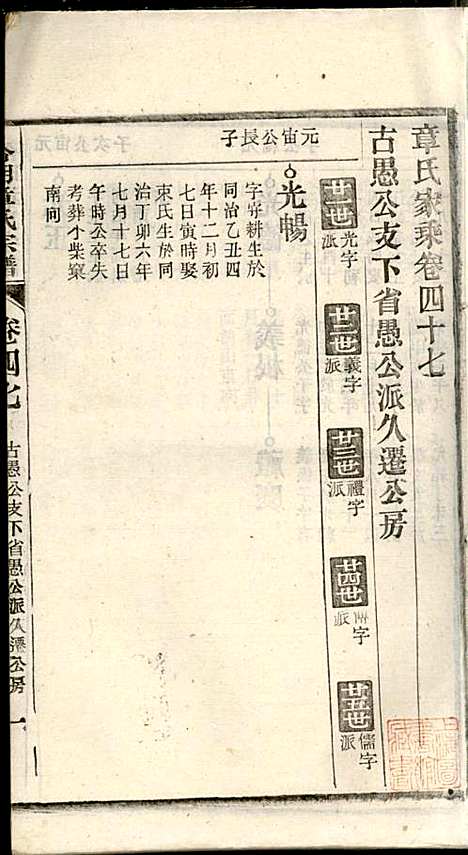 章氏家乘卷四十七
古愚公支下省愚公派久遷公房
廿一世 光字派
廿二世 義字派
廿三世 禮字派
廿四世 字派
廿五世 儒字派
元宙公長子
光暢
字耕生於
同治乙丑四
年十二月初
七日寅時娶
束氏生於同
治丁卯六年
七月十七日
午時公卒失
考葬小柴窠
南向
章氏宗譜
卷四七
古愚公支下省愚公派久遷公房
一